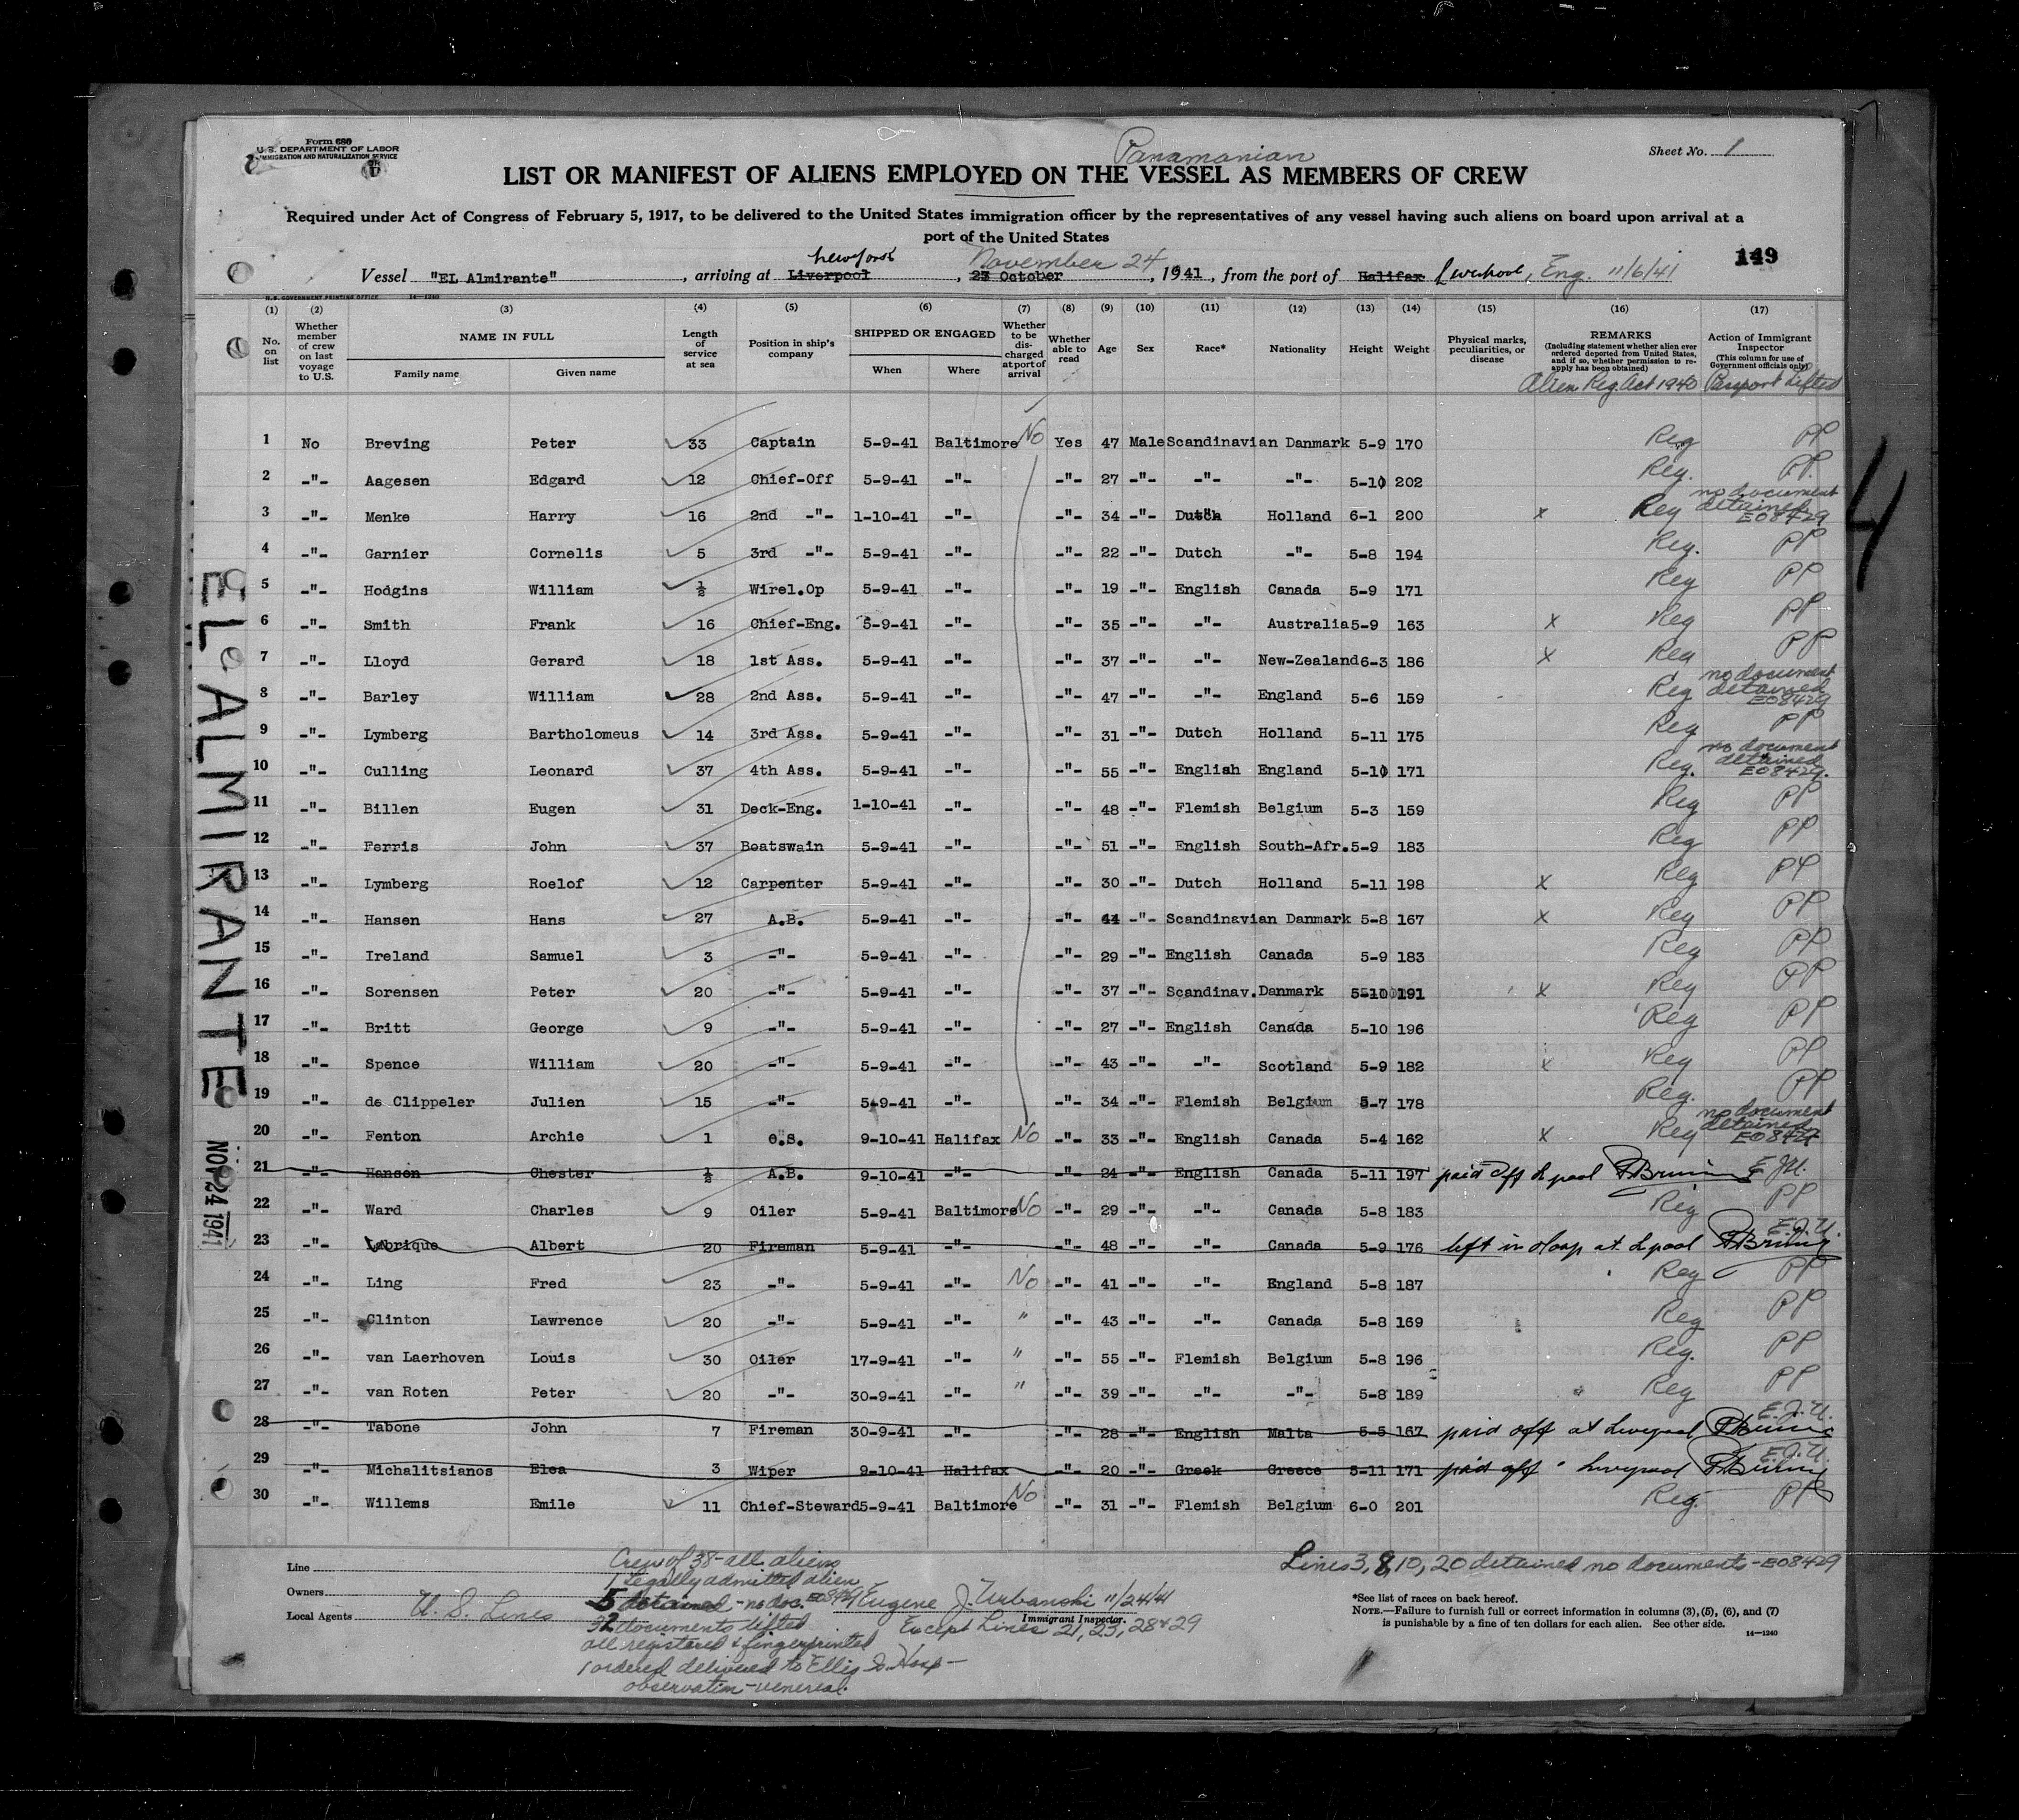 Form 680
U. S. DEPARTMENT OF LABOR
IMMIGRATION AND NATURALIZATION SERVICE
Panamanian
Sheet No. 1
LIST OR MANIFEST OF ALIENS EMPLOYED ON THE VESSEL AS MEMBERS OF CREW
Required under Act of Congress of February 5, 1917, to be delivered to the United States immigration officer by the representatives of any vessel having such aliens on board upon arrival at a
port of the United States
149
Newyork November 24
Vessel "EL Almirante", arriving at Liverpool, 23 October, 1941, from the port of Halifax Liverpool, Eng. 11/6/41
U.S. GOVERNMENT PRINTING OFFICE 14-1240
(1) (2) (3) (4) (5) (6) (7) (8) (9) (10) (11) (12) (13) (14) (15) (16) (17)
No. on list
Whether member of crew on last voyage to U.S.
NAME IN FULL
Family name Given name
Length of service at sea
Position in ship's company
SHIPPED OR ENGAGED
When Where
Whether to be discharged at port of arrival
Whether able to read
Age Sex Race* Nationality Height Weight
Physical marks, peculiarities, or disease
REMARKS
(Including statement whether alien ever ordered deported from United States, and if so, whether permission to reapply has been obtained)
Action of Immigrant Inspector
(This column for use of Government officials only)
Alien Reg. Act 1940 Passport Lifted
1 No Breving Peter 33 Captain 5-9-41 Baltimore No Yes 47 Male Scandinavian Danmark 5-9 170 Reg PP
2 -"- Aagesen Edgard 12 Chief-Off 5-9-41 -"- -"- 27 -"- -"- -"- 5-10 202 Reg. PP.
3 -"- Menke Harry 16 2nd -"- 1-10-41 -"- -"- 34 -"- Dutch Holland 6-1 200 x Reg no document detained E08429
4 -"- Garnier Cornelis 5 3rd -"- 5-9-41 -"- -"- 22 -"- Dutch -"- 5-8 194 Reg. PP
5 -"- Hodgins William ½ Wirel.Op 5-9-41 -"- -"- 19 -"- English Canada 5-9 171 Reg PP
6 -"- Smith Frank 16 Chief-Eng. 5-9-41 -"- -"- 35 -"- -"- Australia 5-9 163 x Reg PP
7 -"- Lloyd Gerard 18 1st Ass. 5-9-41 -"- -"- 37 -"- -"- New-Zealand 6-3 186 x Reg PP
8 -"- Barley William 28 2nd Ass. 5-9-41 -"- -"- 47 -"- -"- England 5-6 159 Reg no document detained E08429
9 -"- Lymberg Bartholomeus 14 3rd Ass. 5-9-41 -"- -"- 31 -"- Dutch Holland 5-11 175 Reg PP
10 -"- Culling Leonard 37 4th Ass. 5-9-41 -"- -"- 55 -"- English England 5-10 171 Reg. no document detained E08429.
11 -"- Billen Eugen 31 Deck-Eng. 1-10-41 -"- -"- 48 -"- Flemish Belgium 5-3 159 Reg PP
12 -"- Ferris John 37 Boatswain 5-9-41 -"- -"- 51 -"- English South-Afr. 5-9 183 Reg PP
13 -"- Lymberg Roelof 12 Carpenter 5-9-41 -"- -"- 30 -"- Dutch Holland 5-11 198 x Reg PP
14 -"- Hansen Hans 27 A.B. 5-9-41 -"- -"- 44 -"- Scandinavian Danmark 5-8 167 x Reg PP
15 -"- Ireland Samuel 3 -"- 5-9-41 -"- -"- 29 -"- English Canada 5-9 183 Reg PP
16 -"- Sorensen Peter 20 -"- 5-9-41 -"- -"- 37 -"- Scandinav. Danmark 5-10 191 x Reg PP
17 -"- Britt George 9 -"- 5-9-41 -"- -"- 27 -"- English Canada 5-10 196 Reg PP
18 -"- Spence William 20 -"- 5-9-41 -"- -"- 43 -"- -"- Scotland 5-9 182 x Reg PP
19 -"- de Clippeler Julien 15 -"- 5-9-41 -"- -"- 34 -"- Flemish Belgium 5-7 178 Reg. PP
20 -"- Fenton Archie 1 O.S. 9-10-41 Halifax No -"- 33 -"- English Canada 5-4 162 x Reg no document detained E08429
21 -"- Hansen Chester ½ A.B. 9-10-41 -"- -"- 24 -"- English Canada 5-11 197 paid off L pool E.J.U.
22 -"- Ward Charles 9 Oiler 5-9-41 Baltimore No -"- 29 -"- -"- Canada 5-8 183 Reg PP
23 -"- Labrique Albert 20 Fireman 5-9-41 -"- -"- 48 -"- -"- Canada 5-9 176 left in hosp at L pool E.J.U.
24 -"- Ling Fred 23 -"- 5-9-41 -"- No -"- 41 -"- -"- England 5-8 187 Reg PP
25 -"- Clinton Lawrence 20 -"- 5-9-41 -"- " -"- 43 -"- -"- Canada 5-8 169 Reg PP
26 -"- van Laerhoven Louis 30 Oiler 17-9-41 -"- " -"- 55 -"- Flemish Belgium 5-8 196 Reg. PP
27 -"- van Roten Peter 20 -"- 30-9-41 -"- " -"- 39 -"- -"- -"- 5-8 189 Reg PP
28 -"- Tabone John 7 Fireman 30-9-41 -"- -"- 28 -"- English Malta 5-5 167 paid off at Liverpool E.J.U.
29 -"- Michalitsianos Elea 3 Wiper 9-10-41 Halifax -"- 20 -"- Greek Greece 5-11 171 paid off " Liverpool E.J.U.
30 -"- Willems Emile 11 Chief-Steward 5-9-41 Baltimore No -"- 31 -"- Flemish Belgium 6-0 201 Reg. PP
EL ALMIRANTE
NOV 24 1941
4
Line
Owners
Local Agents U. S. Lines
Crew of 38 - all aliens
1 Legally admitted alien
5 detained - no doc. E08429
32 documents lifted
all registered & fingerprinted
1 ordered delivered to Ellis Is. Hosp -
observation - venereal.
Eugene J. Urbanski 11/24/41
Immigrant Inspector.
Except Lines 21, 23, 28 & 29
Lines 3, 8, 10, 20 detained no documents - E08429
*See list of races on back hereof.
NOTE.—Failure to furnish full or correct information in columns (3), (5), (6), and (7)
is punishable by a fine of ten dollars for each alien. See other side.
14-1240